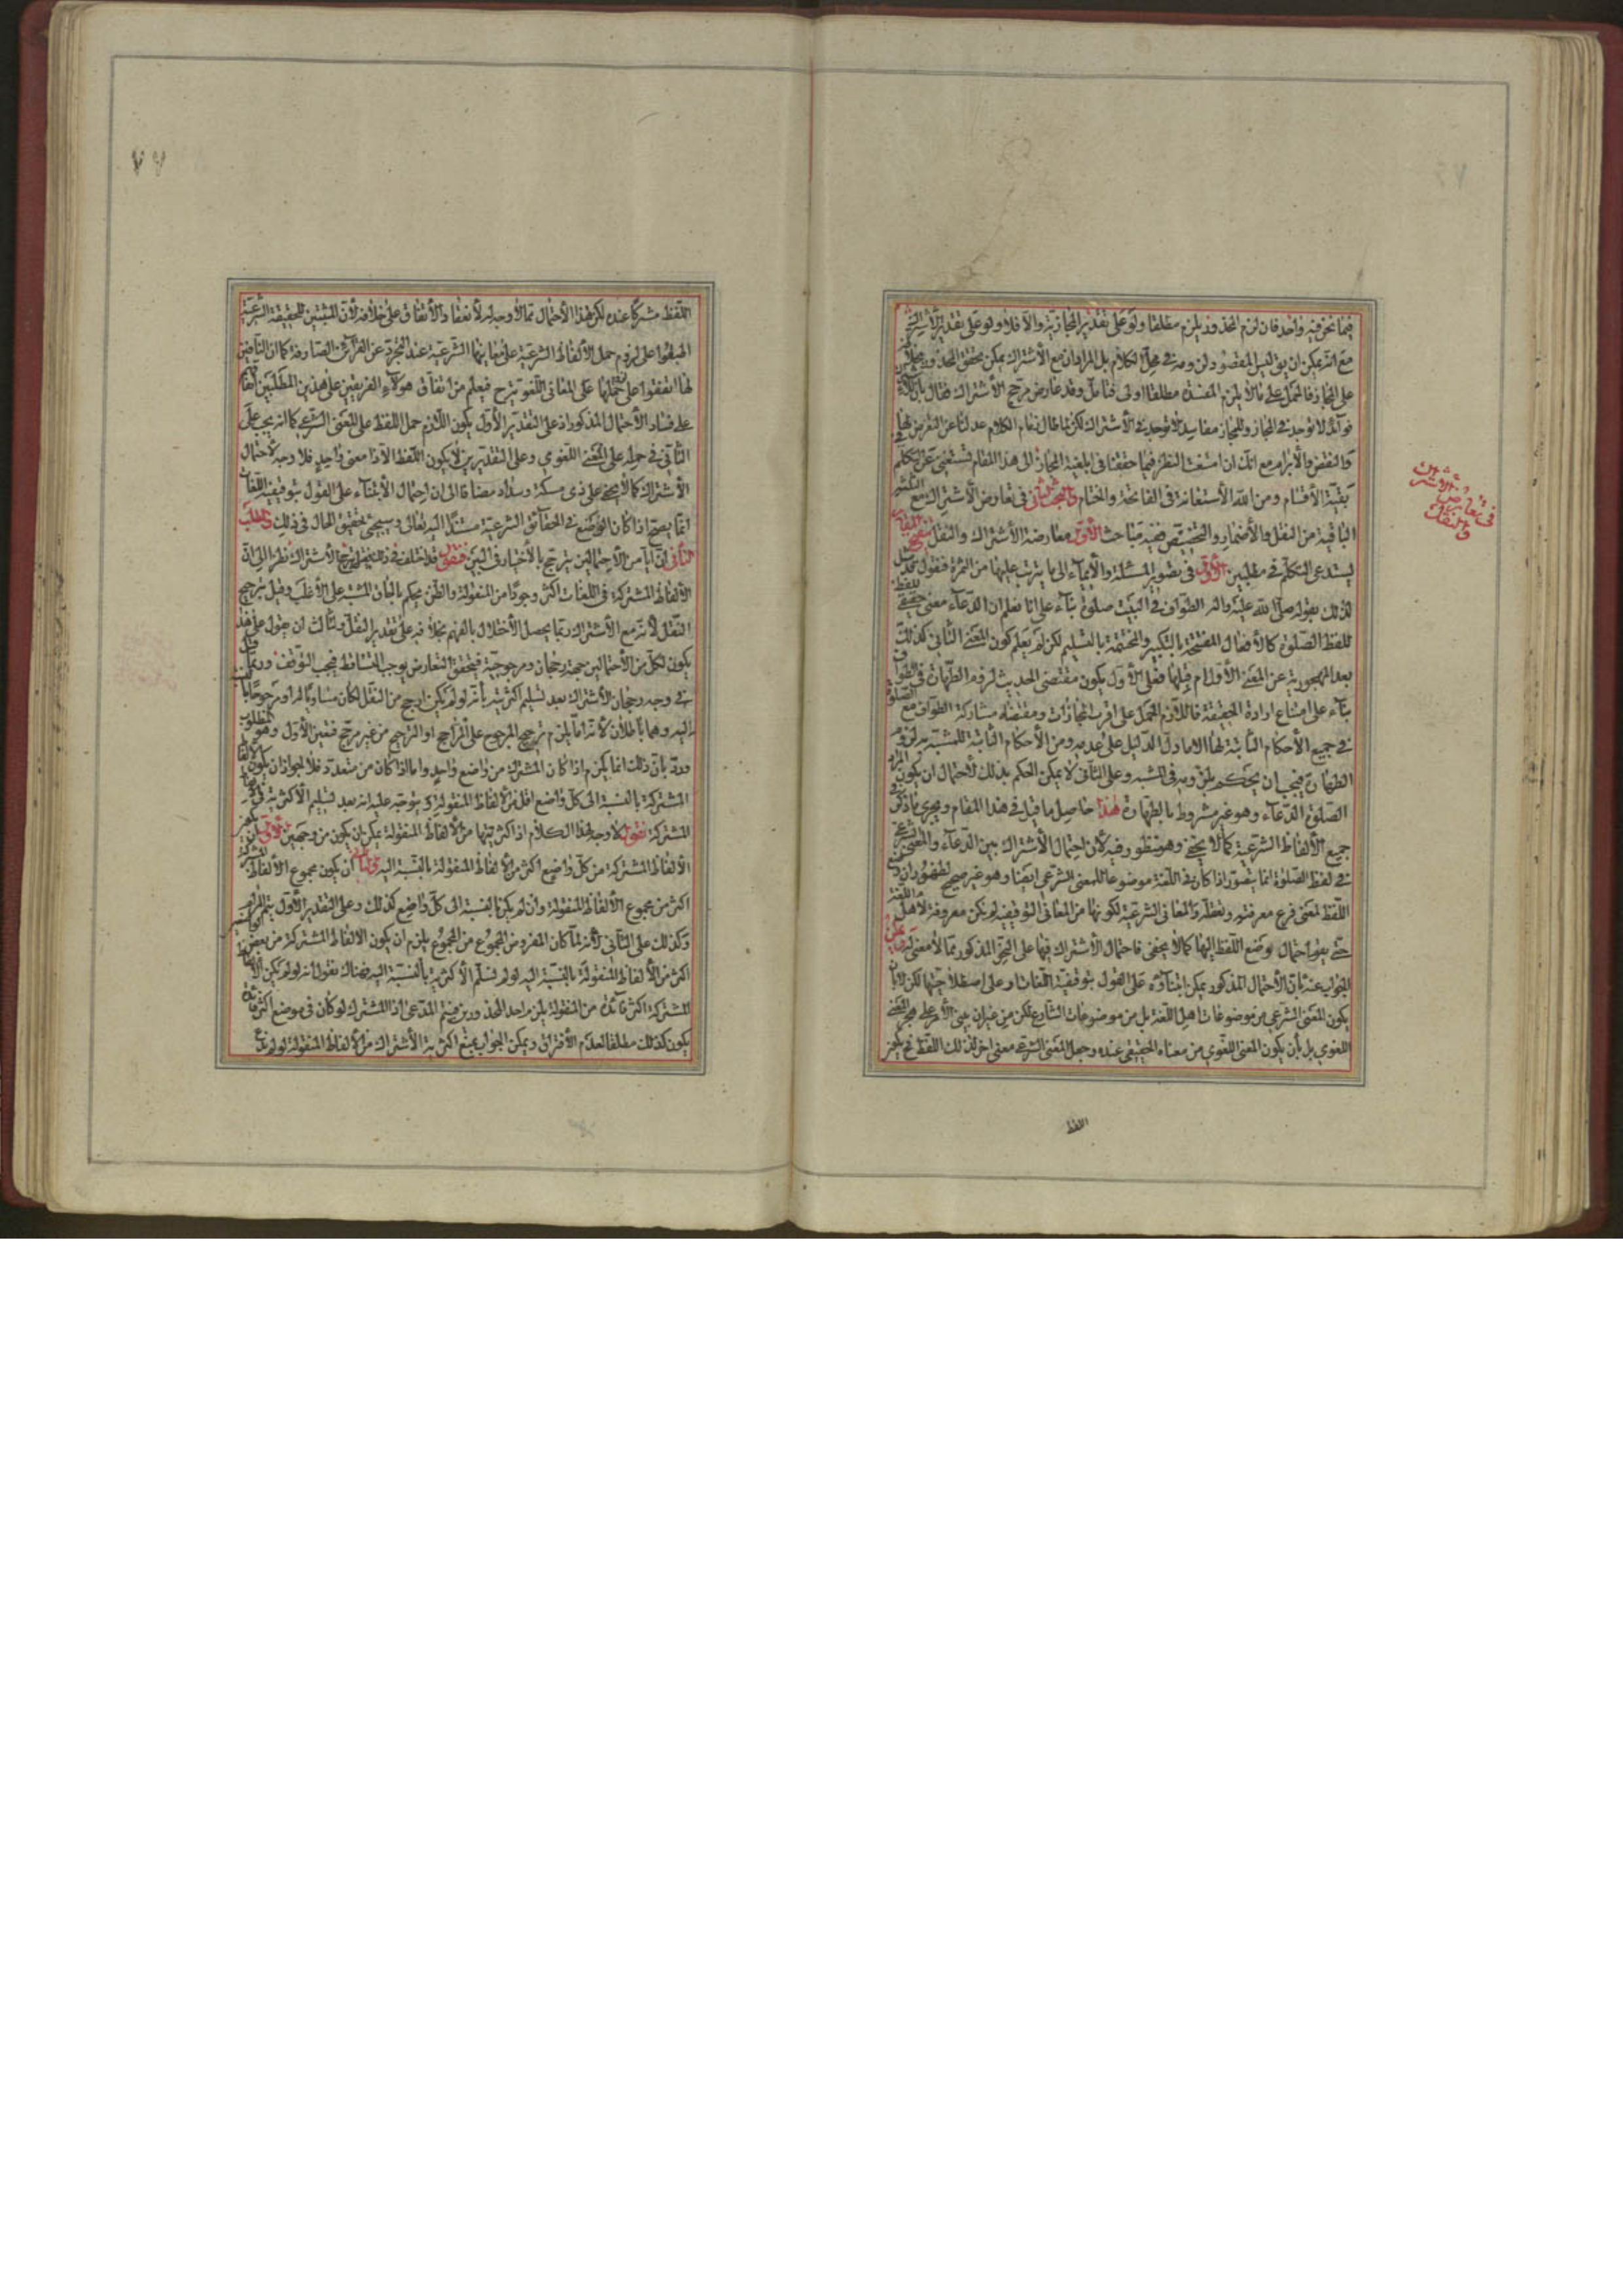 فيما نحن فيه واحد فان لزم المحذور يلزم مطلقا ولو على تقدير المجازية والا فلا ولو على تقدير الاشتراك
مع انه يمكن ان يق ليس المقصود لزومه في محل الكلام بل المراد ان مع الاشتراك يمكن تحقق المحذور
على المجاز فالحمل على ما لا يلزم المفسدة مطلقا اولى فتامل وقد عارض مرجح الاشتراك فقال بان له
فوائد لا توجد في المجاز وللمجاز مفاسد لا توجد في الاشتراك لكن لما طال زمام الكلام عدلنا عن التعرض لها
والنقض والابرام مع انك ان امعنت النظر فيما حققنا في ابلغية المجاز الى هذا المقام تستغني عن التكلم في
بقية الاقسام ومن الله الاستعانة في الفاتحة والختام والمبحث الثاني في تعارض الاشتراك مع
الباقية من النقل والاضمار والتخصيص ففيه مباحث الاول معارضة الاشتراك والنقل تنقيح المقام
يستدعي التكلم في مطلبين الاول في تصوير المسئلة والايماء الى ما يترتب عليها من الثمرة فنقول
لذلك بقوله صلى الله عليه واله الطواف في البيت صلوة بناء على انا نعلم ان الدعاء معنى حقيقي
للفظ الصلوة كالافعال المفتتحة بالتكبير والمختتمة بالتسليم لكن لم يعلم كون المعنى الثاني كذلك
بعد المهجورية عن المعنى الاول ام قبلها فعلى الاول يكون مقتضى الحديث لزوم الطهارة في الطواف
بناء على امتناع ارادة الحقيقة فاللازم الحمل على اقرب المجازات ومقتضاه مشاركة الطواف مع الصلوة
في جميع الاحكام الثابتة لها الا ما دل الدليل على عدمه ومن الاحكام الثابتة للمشبه به لزوم
الطهارة فيجب ان يحكم بلزومه في المشبه وعلى الثاني لا يمكن الحكم بذلك لاحتمال ان يكون المراد
الصلوة الدعاء وهو غير مشروط بالطهارة هذا حاصل ما قيل في هذا المقام ويجري ما ذكر في
جميع الالفاظ الشرعية كما لا يخفى وهو منظور فيه لان احتمال الاشتراك بين الدعاء والمعنى الشرعي
في لفظ الصلوة انما يتصور اذا كان في اللغة موضوعا للمعنى الشرعي ايضا وهو غير صحيح لظهور ان وضع
اللفظ لمعنى فرع معرفته وتعقله والمعاني الشرعية لكونها من المعاني التوقيفية لم تكن معروفة لاهل اللغة
حتى يق باحتمال وضع اللفظ اليها كما لا يخفى فاحتمال الاشتراك فيها على النحو المذكور مما لا معنى له ويمكن
الجواب عنه بان الاحتمال المذكور يمكن ابتناؤه على القول بتوقيفية اللغات او على اصطلاحيتها لكن لا بان
يكون المعنى الشرعي من موضوعات اهل اللغة بل من موضوعات الشارع لكن من غير ان يبنى الامر على هجر المعنى
اللغوي بل بان يكون المعنى اللغوي من معناه الحقيقي عنده وجعل المعنى الشرعي معنى اخر لذلك اللفظ فح يكون
اللفظ
في تعارض الاشتراك
والنقل
٧٧
اللفظ مشتركا عنده لكن هذا الاحتمال مما لا وجه له لانعقاد الاتفاق على خلافه لان المثبتين للحقيقة الشرعية
اطبقوا على لزوم حمل الالفاظ الشرعية على معانيها الشرعية عند التجرد عن القرائن الصارفة كما ان النافين
لها اتفقوا على حملها على المعاني اللغوية ح فيعلم من اتفاق هولاء الفريقين على هذين المطلبين اتفاقهم
على فساد الاحتمال المذكور اذ على التقدير الاول يكون اللازم حمل اللفظ على المعنى الشرعي كما انه يجب على
الثاني في حمله على المعنى اللغوي وعلى التقديرين لا يكون اللفظ الا ذا معنى واحد فلا وجه لاحتمال
الاشتراك كما لا يخفى على ذي مسكة وسداد مضافا الى ان احتمال الابتناء على القول بتوقيفية اللغات
انما يصح اذا كان الوضع في الحقائق الشرعية مستندا اليه تعالى وسيجئ تحقيق الحال في ذلك والمطلب
الثاني ان ايا من الاحتمالين يترجح بالاختيار في البين فنقول قد اختلف في ذلك فقيل بترجيح الاشتراك نظرا الى ان
الالفاظ المشتركة في اللغات اكثر وجودا من المنقولة والظن يحكم بالحاق المشتبه على الاغلب وقيل بترجيح
النقل لانه مع الاشتراك ربما يحصل الاخلال بالفهم بخلافه على تقدير النقل ولثالث ان يقول على هذا
يكون لكل من الاحتمالين جهة رجحان ومرجوحية فيتحقق التعارض يوجب التساقط فيجب التوقف وربما
في وجه رجحان الاشتراك بعد تسليم اكثريته بانه لو لم يكن ارجح من النقل لكان مساويا له او مرجوحا بالنسبة
اليه وهما باطلان لانه اما يلزم ترجيح المرجوح على الراجح او الترجيح من غير مرجح فتعين الاول وهو المطلوب
ورد بان ذلك انما يلزم اذا كان المشترك من واضع واحد واما اذا كان من متعدد فلا لجواز ان يكون الالفاظ
المشتركة بالنسبة الى كل واضع اقل من الالفاظ المنقولة ويتوجه عليه انه بعد تسليم الاكثرية في
المشتركة نقول لا وجه لهذا الكلام اذ اكثريتها من الالفاظ المنقولة يمكن ان يكون من وجهين الاول ان يكون
الالفاظ المشتركة من كل واضع اكثر من الالفاظ المنقولة بالنسبة اليه والثاني ان يكون مجموع الالفاظ المشتركة
اكثر من مجموع الالفاظ المنقولة وان لم يكن بالنسبة الى كل واضع كذلك وعلى التقدير الاول يتم المرام
وكذلك على الثاني لانه لما كان المفروض المجموع من المجموع يلزم ان يكون الالفاظ المشتركة من بعض الواضعين
اكثر من الالفاظ المنقولة بالنسبة اليه لو لم نسلم الاكثرية بالنسبة اليه فهناك نقول انه لو لم يكن الالفاظ
المشتركة اكثر فائدة من المنقولة يلزم احد المحذورين فيتم المدعى اذ المشترك لو كان في موضع اكثر فائدة
يكون كذلك مطلقا لعدم الافتراق ويمكن الجواب بمنع اكثرية الاشتراك من الالفاظ المنقولة لو لم ندع